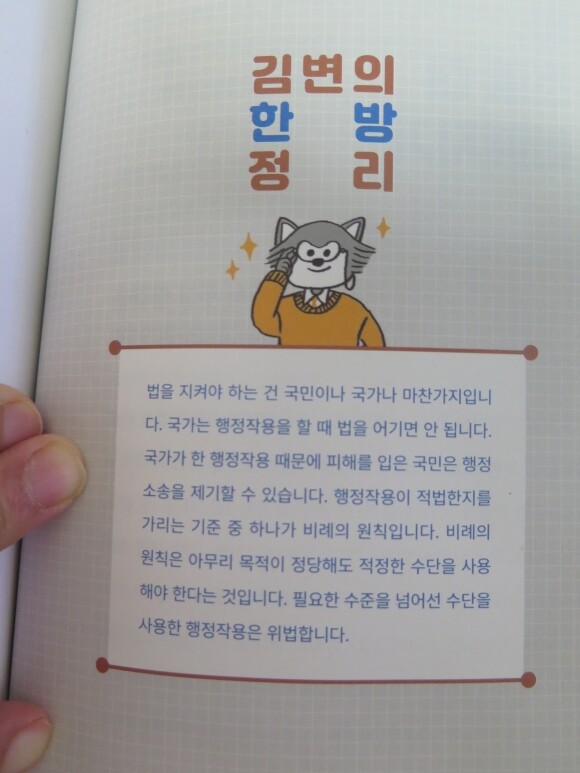 김변의
한 방
정 리
법을 지켜야 하는 건 국민이나 국가나 마찬가지입니
다. 국가는 행정작용을 할 때 법을 어기면 안 됩니다.
국가가 한 행정작용 때문에 피해를 입은 국민은 행정
소송을 제기할 수 있습니다. 행정작용이 적법한지를
가리는 기준 중 하나가 비례의 원칙입니다. 비례의
원칙은 아무리 목적이 정당해도 적정한 수단을 사용
해야 한다는 것입니다. 필요한 수준을 넘어선 수단을
사용한 행정작용은 위법합니다.